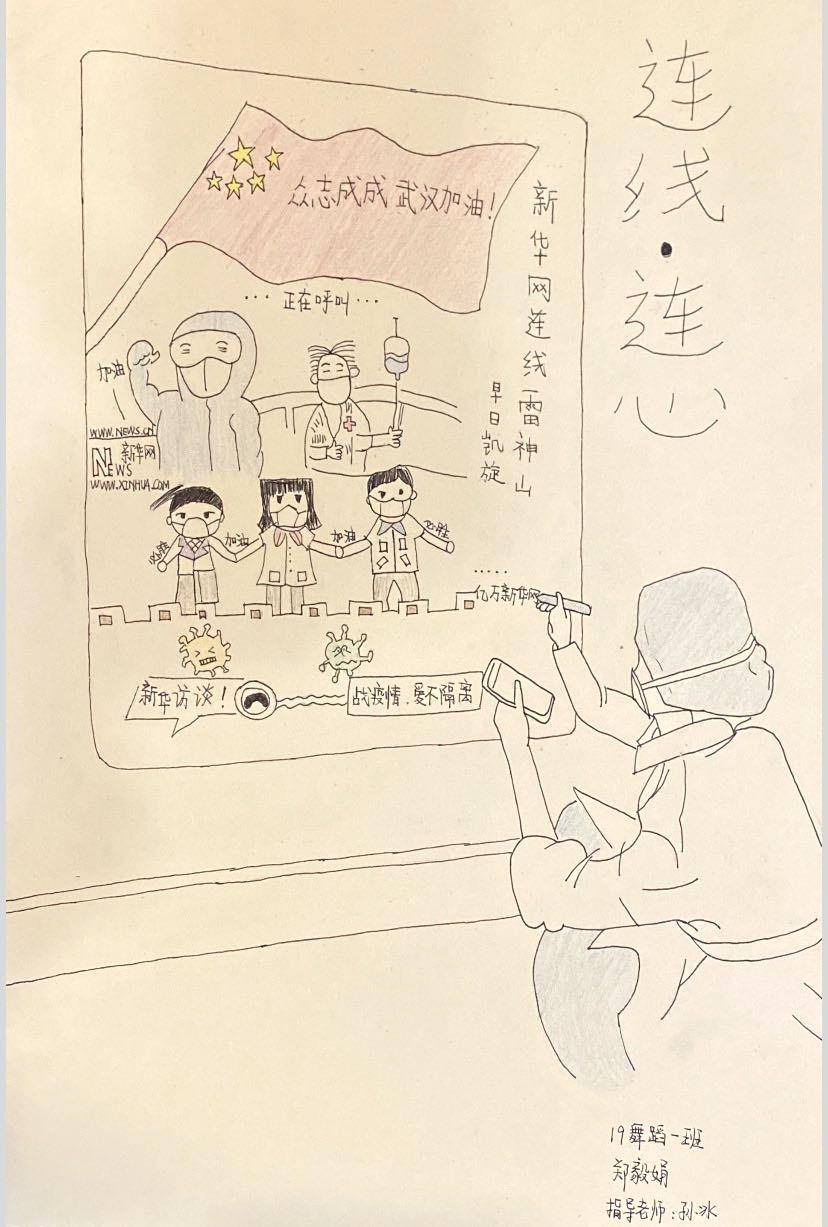 连线·连心
众志成成 武汉加油!
...正在呼叫...
新华网连线雷神山
早日凯旋
加油
WWW.NEWS.CN
NEWS 新华网
WWW.XINHUA.COM
必胜
加油
加油
必胜
.....
亿万新华网
新华访谈!
战疫情.爱不隔离
19舞蹈一班
郑毅娟
指导老师:孙冰